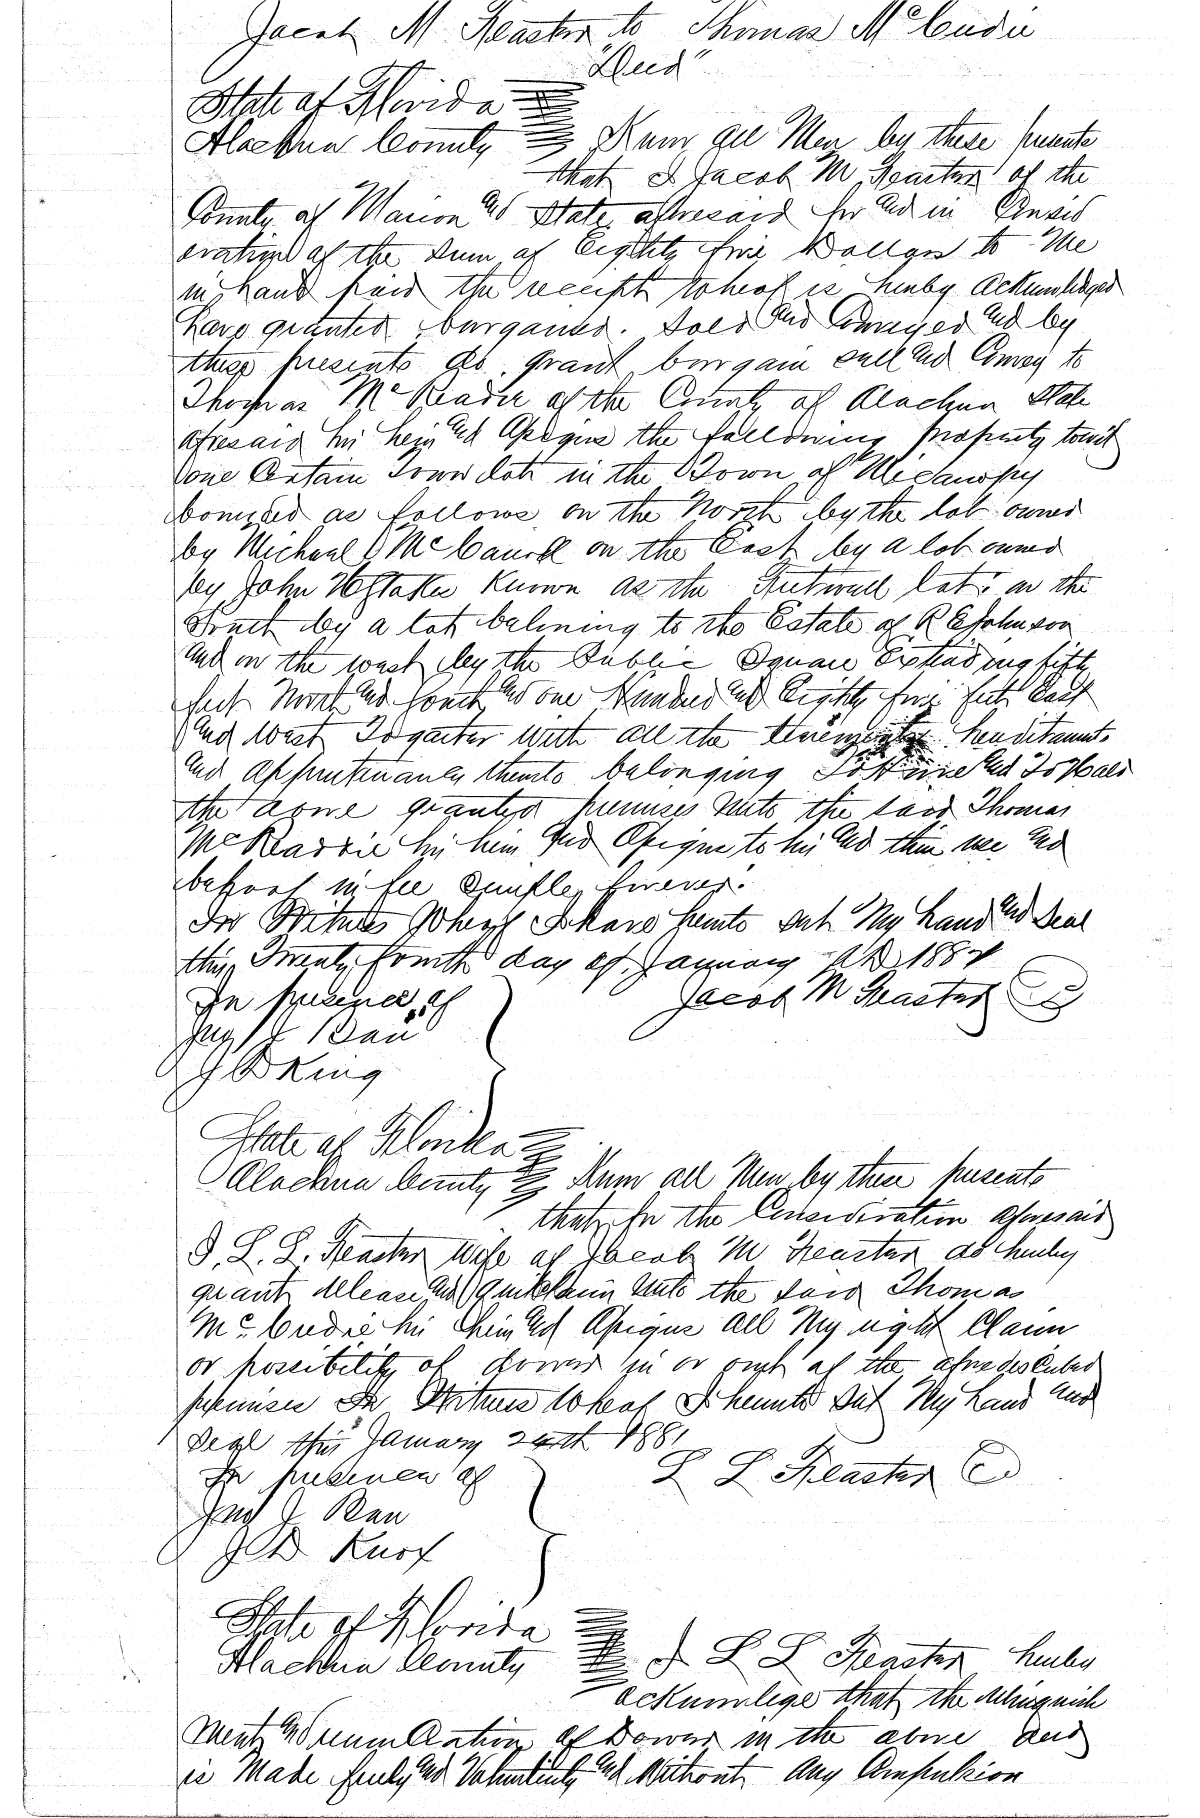 Jacob M Feaster to Thomas McCredie
"Deed"
State of Florida
Alachua County Know all Men by these presents
that I Jacob M Feaster of the
County of Marion and State aforesaid for and in Consid
eration of the Sum of Eighty five Dollars to Me
in hand paid the receipt whereof is hereby acknowledged
have granted bargained. Sold and Conveyed and by
these presents do grant bargain sell and Convey to
Thomas McReadie of the County of Alachua State
aforesaid his heirs and Assigns the following property towit
one Certain Town lot in the Town of Micanopy
bounded as follows on the North by the lot owned
by Michael McCarrell on the East by a lot owned
by John known as the lot on the
South by a lot beloning to the Estate of R E Johnson
and on the west by the Public Square Extending fifty
feet North and South and one Hundred and Eighty five feet East
and West Togeather with all the tenements hereditaments
and appurtenances thereto belonging To Have and To Hold
the above granted premises unto the said Thomas
McReadie his heirs and Assigns to his and their use and
behoof in fee Simple forever.
In Witness Whereof I have hereunto set My hand and Seal
this Twenty fourth day of January AD 1881
In presence of Jacob M Feaster
Jno J Barr
J D King
State of Florida
Alachua County Know all Men by these presents
that for the Consideration aforesaid
I, L. L. Feaster wife of Jacob M Feaster do hereby
grant release and Quitclaim unto the said Thomas
McCredie his heirs and Assigns all My right Claim
or possibility of dower in or out of the aforedescribed
premises In Witness Whereof I hereunto Set My hand and
Seal this January 24th 1881
In presence of L L Feaster
Jno J Barr
J D Knox
State of Florida
Alachua County I L L Feaster hereby
acknowlege that the relinquish
ment and renunciation of Dower in the above deed
is Made freely and Voluntarily and Without any Compulsion